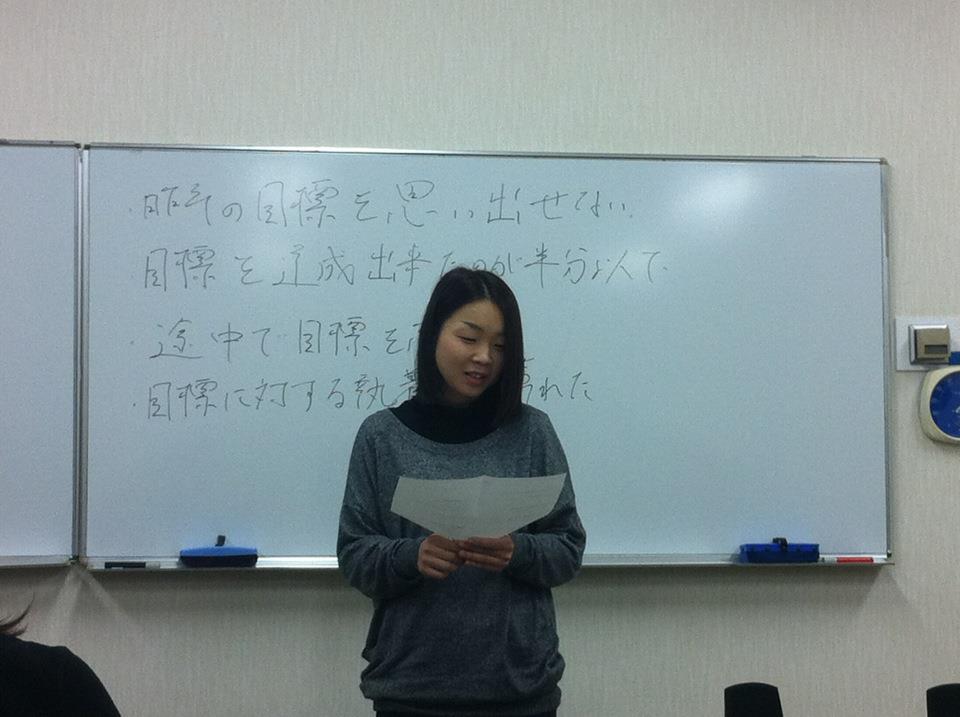 ・昨年の目標を思い出せない
目標を達成出来たのが半分以下
・途中で目標を
・目標に対する執着 薄れた